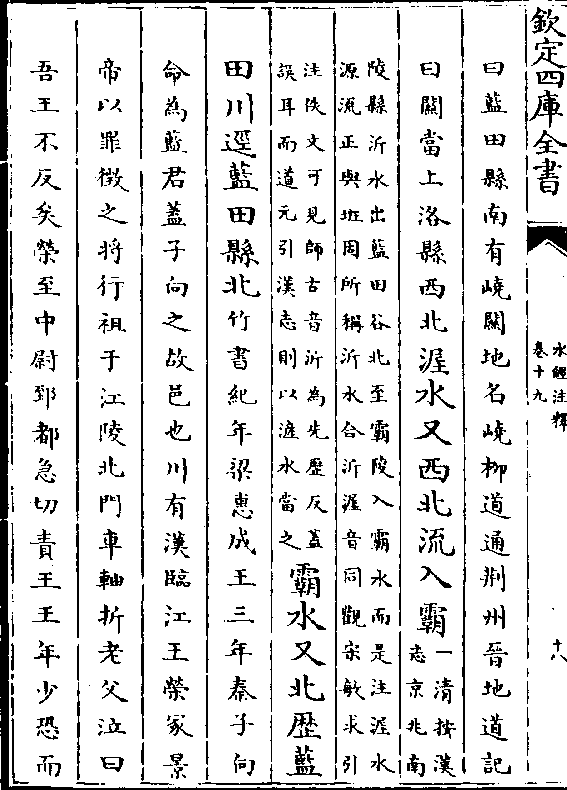 欽定四庫全書
水經注釋
卷十九
十八
曰藍田縣南有嶢關地名嶢柳道通荆州晉地道記
曰關當上洛縣西北渥水又西北流入霸
一清按漢
志京兆南
陵縣沂水出藍田谷北至霸陵入霸水而是注渥水
源流正與班固所稱沂水合沂渥音同觀宋敏求引
注佚文可見師古音沂為先歴反蓋
誤耳而道元引漢志則以滻水當之
霸水又北歴藍
田川逕藍田縣北竹書紀年梁惠成王三年秦子向
命為藍君蓋子向之故邑也川有漢臨江王榮冢景
帝以罪徴之將行祖于江陵北門車軸折老父泣曰
吾王不反矣榮至中尉郅都急切責王王年少恐而